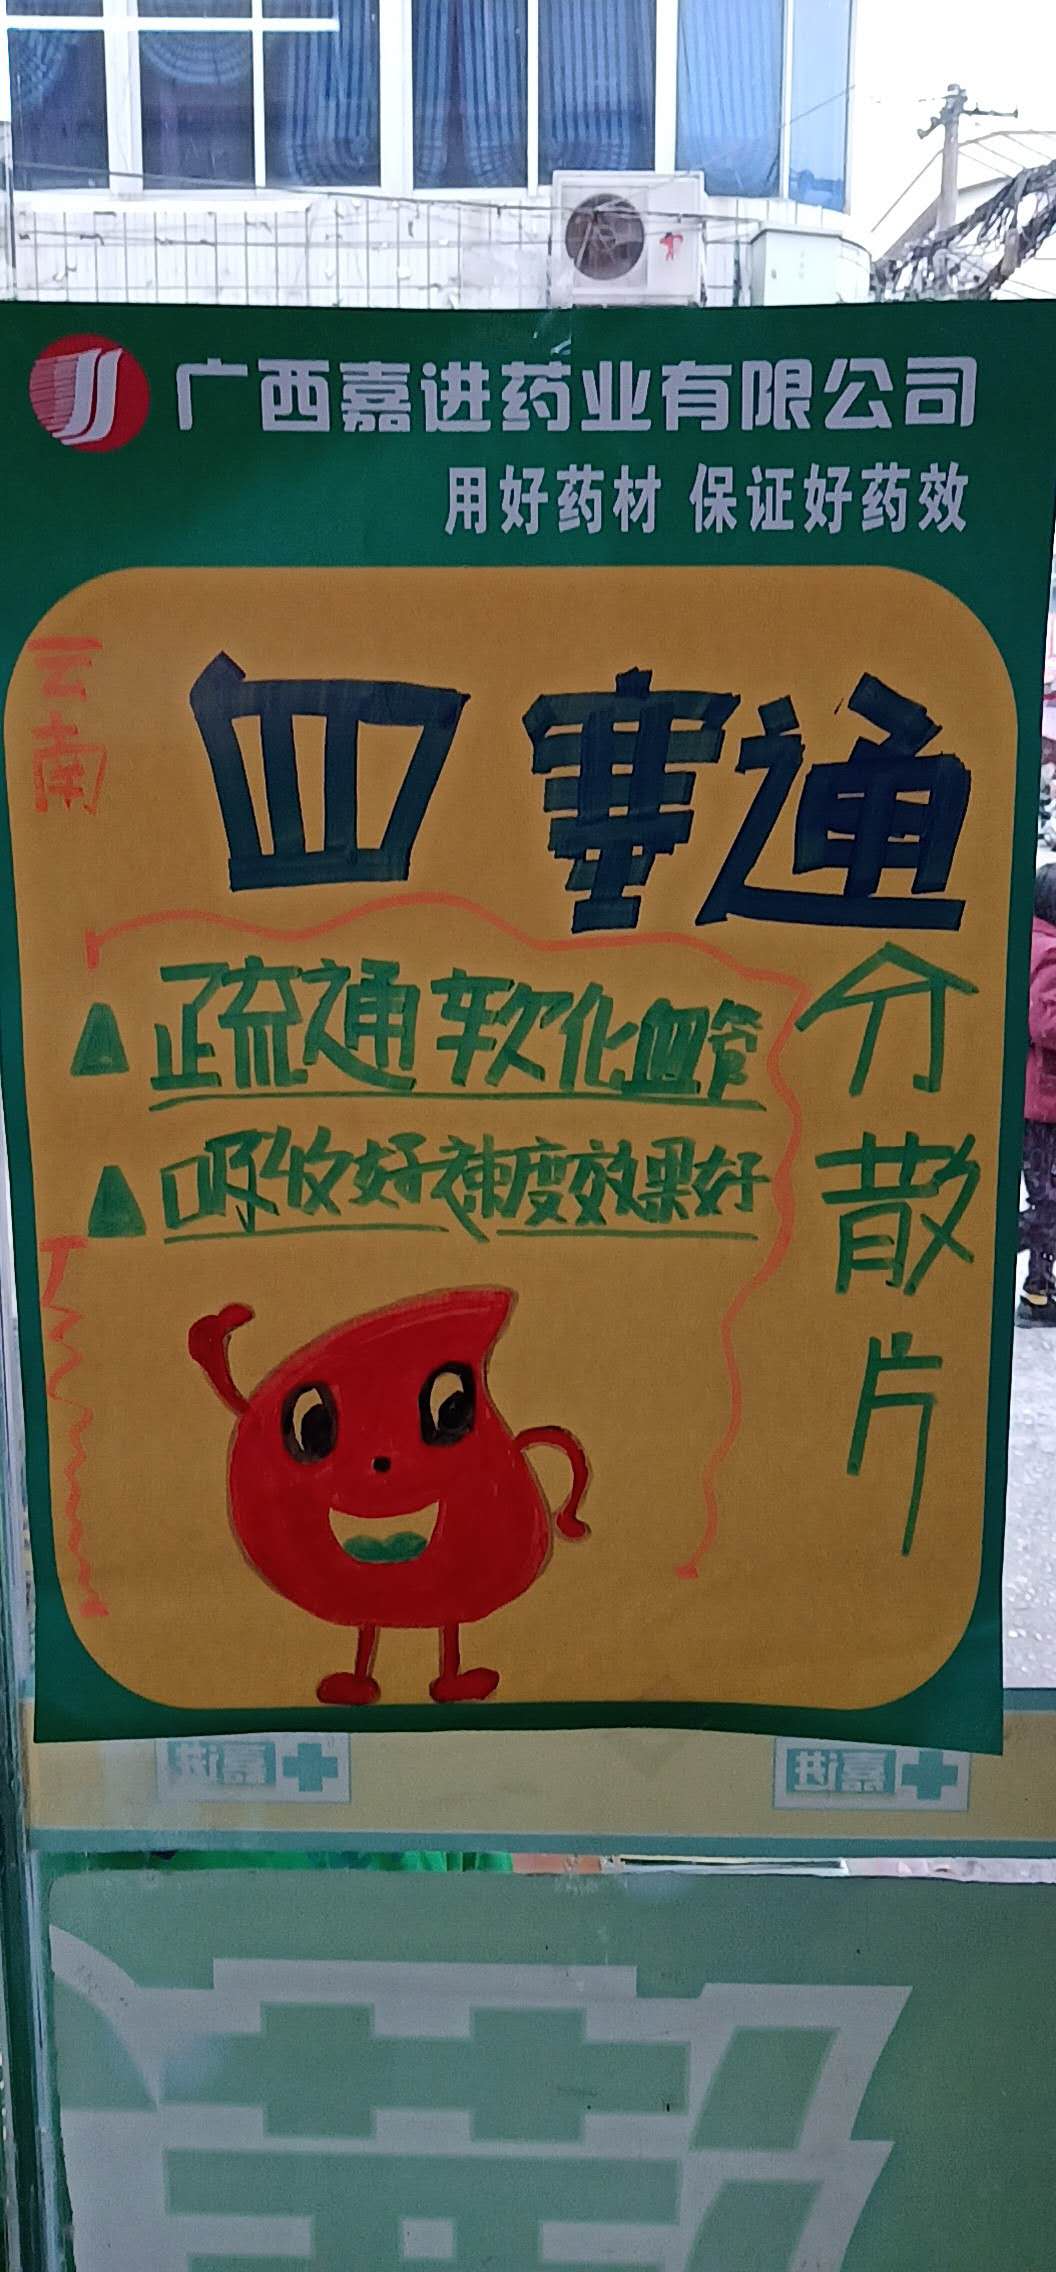 广西嘉进药业有限公司
用好药材 保证好药效
云南
血赛通
分散片
▲疏通软化血管
▲吸收好速度效果好
嘉进
嘉进